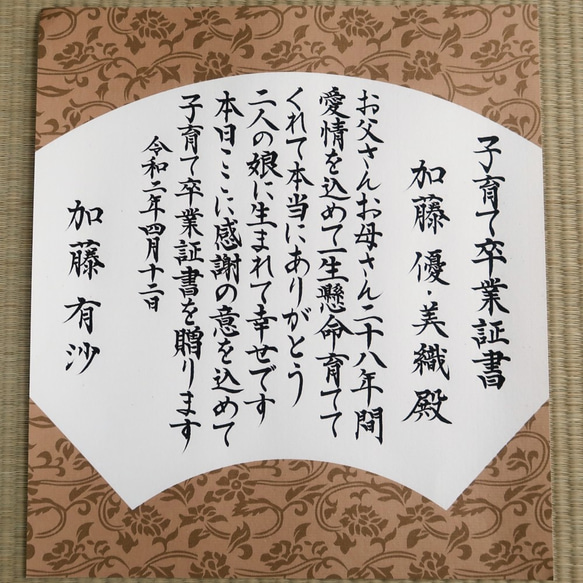 子育て卒業証書
加藤優・美織殿
お父さんお母さん二十八年間
愛情を込めて一生懸命育てて
くれて本当にありがとう
二人の娘に生まれて幸せです
本日ここに感謝の意を込めて
子育て卒業証書を贈ります
令和二年四月十二日
加藤有沙